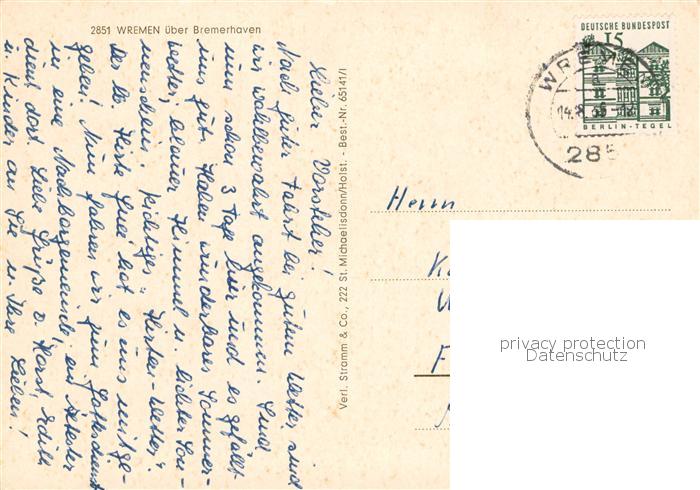 2851 WREMEN über Bremerhaven
Lieber Vorsteher!
Nach guter Fahrt bei gutem Wetter sind
wir wohlbewahrt angekommen. Sind
nun schon 3 Tage hier und es gefällt
uns gut. Haben wunderbares Sommer-
wetter, blauer Himmel u. lichter Son-
nenschein, richtiges "Hirten-Wetter".
Der lb. Hirte Gott hat es uns mitge-
geben! Nun fahren wir zum Gottesdienst
in eine Nachbargemeinde, ein Ältester
dient dort. Liebe Grüße v. Horst, Edith
u. Kinder an Sie u. Ihre Lieben!
Verl. Stramm & Co., 222 St. Michaelisdonn/Holst. - Best.-Nr. 65141/I
DEUTSCHE BUNDESPOST
15
BERLIN-TEGEL
WREMEN
14.8.
285
Herrn
privacy protection
Datenschutz